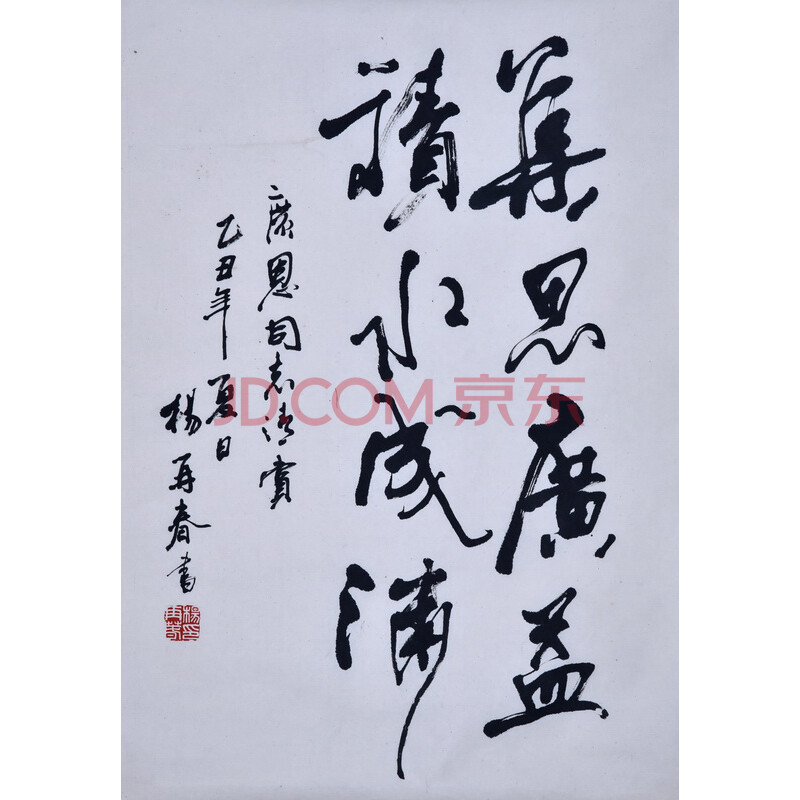 集思廣益
積水成淵
廣恩同志清賞
乙丑年夏日
楊再春書
楊印再春
JD.COM 京东